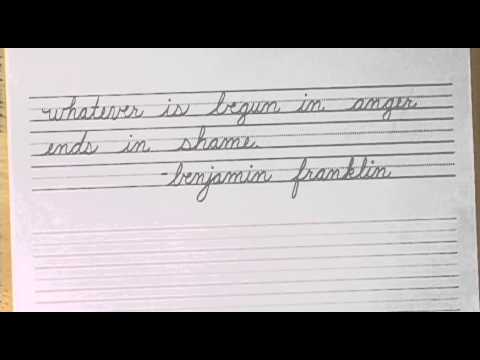 whatever is begun in anger
ends in shame.
-benjamin franklin